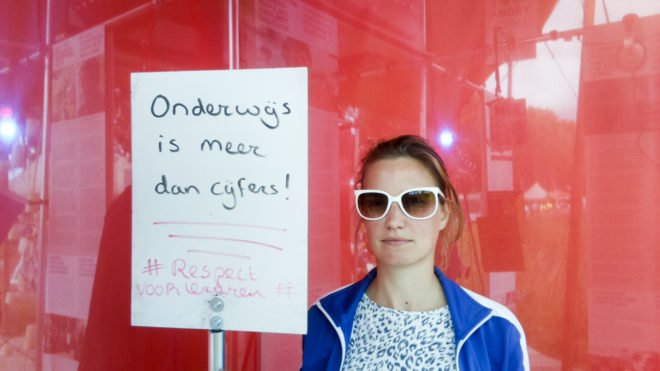 Onderwijs
is meer
dan cijfers!
# Respect
voor leraren #